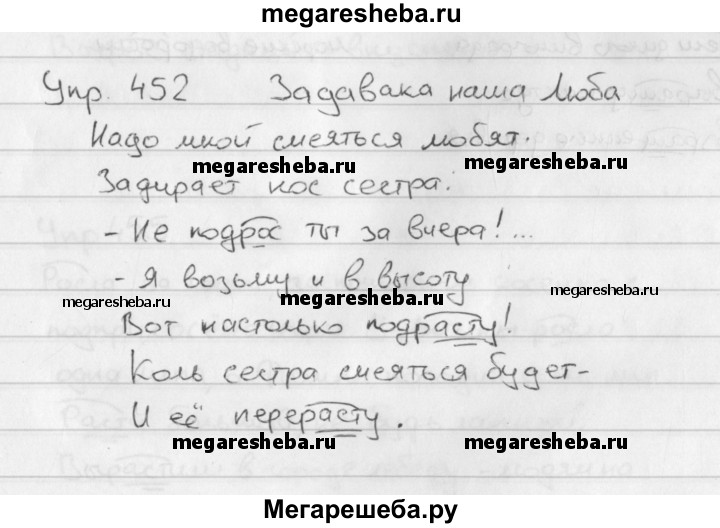 megaresheba.ru
Упр. 452 Задавака наша Люба
Надо мной смеяться любят.
megaresheba.ru megaresheba.ru
Задирает нос сестра:
- Не подрос ты за вчера!...
- Я возьму и в высоту
megaresheba.ru megaresheba.ru megaresheba.ru
Вот настолько подрасту!
Коль сестра смеяться будет-
И её перерасту.
megaresheba.ru megaresheba.ru
Мегарешеба.ру